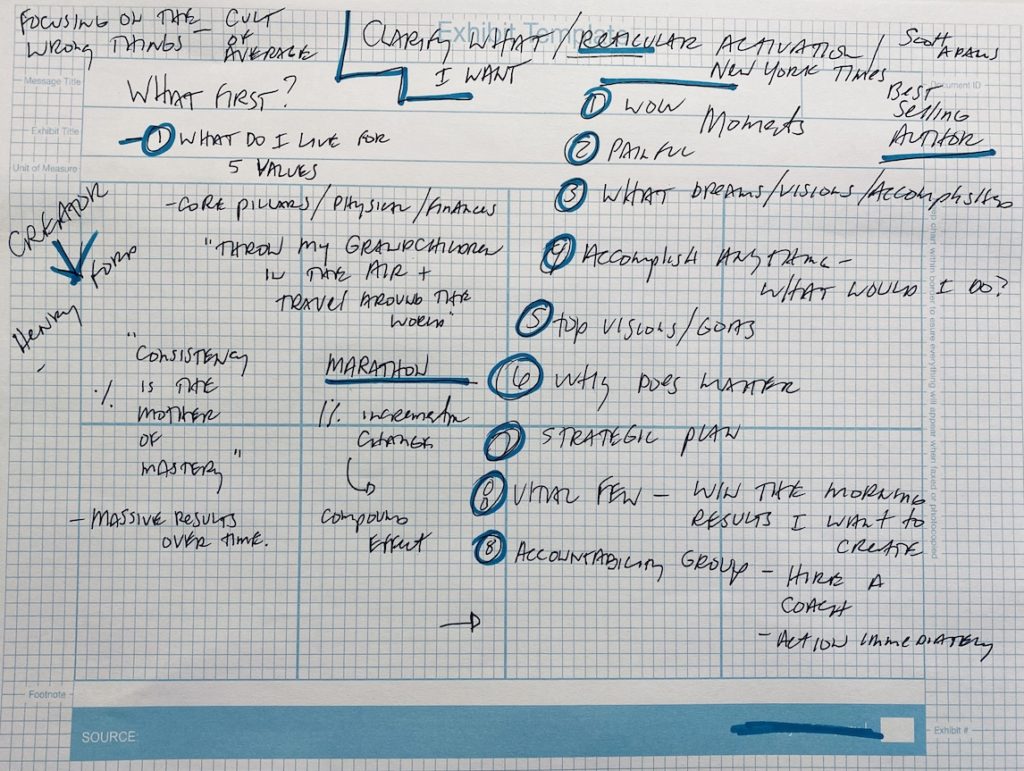 Exhibit Template
FOCUSING ON THE
WRONG THINGS -
CULT
OF
AVERAGE
CLARIFY WHAT /
I WANT
RETICULAR ACTIVATION /
NEW YORK TIMES
SCOTT
ADAMS
BEST
SELLING
AUTHOR
Message Title
Document ID
Exhibit Title
Unit of Measure
WHAT FIRST?
- 1 WHAT DO I LIVE FOR
5 VALUES
- CORE PILLARS / PHYSICAL / FINANCES
"THROW MY GRANDCHILDREN
IN THE AIR +
TRAVEL AROUND THE
WORLD"
CREATOR
HENRY FORD
"CONSISTENCY
IS THE
MOTHER
OF
MASTERY"
- MASSIVE RESULTS
OVER TIME.
MARATHON
1% INCREMENTAL
CHANGE
COMPOUND
EFFECT
1 WOW Moments
2 PAINFUL
3 WHAT DREAMS/VISIONS/
4 ACCOMPLISH ANYTHING -
WHAT WOULD I DO?
5 TOP VISIONS/
6 WHY DOES MATTER
7 STRATEGIC PLAN
8 VITAL FEW - WIN THE MORNING
RESULTS I WANT TO
CREATE
8 ACCOUNTABILITY GROUP - HIRE A
COACH
- ACTION IMMEDIATELY
chart within border to esure everything will appear when faxed or photocopied
Footnote
SOURCE:
Exhibit #